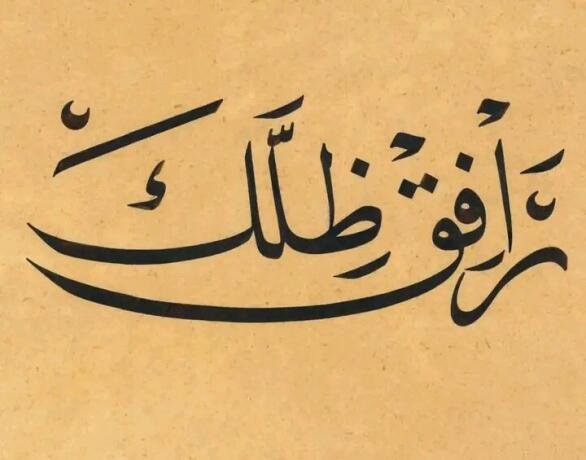 رَافِقْ ظِلَّكَ